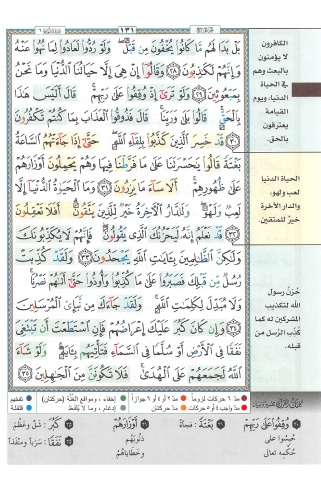 ١٣١
بَلْ بَدَا لَهُم مَّا كَانُوا۟ يُخْفُونَ مِن قَبْلُ ۖ وَلَوْ رُدُّوا۟ لَعَادُوا۟ لِمَا نُهُوا۟ عَنْهُ
وَإِنَّهُمْ لَكَٰذِبُونَ ٢٨ وَقَالُوٓا۟ إِنْ هِىَ إِلَّا حَيَاتُنَا ٱلدُّنْيَا وَمَا نَحْنُ
بِمَبْعُوثِينَ ٢٩ وَلَوْ تَرَىٰٓ إِذْ وُقِفُوا۟ عَلَىٰ رَبِّهِمْ ۚ قَالَ أَلَيْسَ هَٰذَا
بِٱلْحَقِّ ۚ قَالُوا۟ بَلَىٰ وَرَبِّنَا ۚ قَالَ فَذُوقُوا۟ ٱلْعَذَابَ بِمَا كُنتُمْ تَكْفُرُونَ
٣٠ قَدْ خَسِرَ ٱلَّذِينَ كَذَّبُوا۟ بِلِقَآءِ ٱللَّهِ ۖ حَتَّىٰٓ إِذَا جَآءَتْهُمُ ٱلسَّاعَةُ
بَغْتَةً قَالُوا۟ يَٰحَسْرَتَنَا عَلَىٰ مَا فَرَّطْنَا فِيهَا وَهُمْ يَحْمِلُونَ أَوْزَارَهُمْ
عَلَىٰ ظُهُورِهِمْ ۚ أَلَا سَآءَ مَا يَزِرُونَ ٣١ وَمَا ٱلْحَيَوٰةُ ٱلدُّنْيَآ إِلَّا
لَعِبٌ وَلَهْوٌ ۖ وَلَلدَّارُ ٱلْءَاخِرَةُ خَيْرٌ لِّلَّذِينَ يَتَّقُونَ ۗ أَفَلَا تَعْقِلُونَ
٣٢ قَدْ نَعْلَمُ إِنَّهُۥ لَيَحْزُنُكَ ٱلَّذِى يَقُولُونَ ۖ فَإِنَّهُمْ لَا يُكَذِّبُونَكَ
وَلَٰكِنَّ ٱلظَّٰلِمِينَ بِـَٔايَٰتِ ٱللَّهِ يَجْحَدُونَ ٣٣ وَلَقَدْ كُذِّبَتْ
رُسُلٌ مِّن قَبْلِكَ فَصَبَرُوا۟ عَلَىٰ مَا كُذِّبُوا۟ وَأُوذُوا۟ حَتَّىٰٓ أَتَىٰهُمْ نَصْرُنَا ۚ
وَلَا مُبَدِّلَ لِكَلِمَٰتِ ٱللَّهِ ۚ وَلَقَدْ جَآءَكَ مِن نَّبَإِى۟ ٱلْمُرْسَلِينَ
٣٤ وَإِن كَانَ كَبُرَ عَلَيْكَ إِعْرَاضُهُمْ فَإِنِ ٱسْتَطَعْتَ أَن تَبْتَغِىَ
نَفَقًا فِى ٱلْأَرْضِ أَوْ سُلَّمًا فِى ٱلسَّمَآءِ فَتَأْتِيَهُم بِـَٔايَةٍ ۚ وَلَوْ شَآءَ
ٱللَّهُ لَجَمَعَهُمْ عَلَى ٱلْهُدَىٰ ۚ فَلَا تَكُونَنَّ مِنَ ٱلْجَٰهِلِينَ ٣٥
الكافرون
لا يؤمنون
بالبعث وهم
في الحياة
الدنيا، ويوم
القيامة
يعترفون
بالحق.
الحياة الدنيا
لعب ولهو،
والدار الآخرة
خيرٌ للمتقين.
حُزنُ رسول
الله لتكذيب
المشركين له كما
كُذّب الرُّسل من
قبله.
مدّ ٦ حركات لزوماً
مدّ ٢ أو ٤ أو ٦ جوازاً
إخفاء، ومواقع الغُنَّة (حركتان)
تفخيم
مدّ واجب ٤ أو ٥ حركات
مدّ حركتان
إدغام، وما لا يُلفَظ
قلقلة
٣٠ وُقِفُوا عَلَىٰ رَبِّهِمْ
حُبِسُوا على
حُكْمِه تعالى
٣١ بَغْتَةً: فجأةً
٣١ أَوْزَارَهُمْ
ذنُوبَهُم
وخطاياهُمْ
٣٥ كَبُرَ: شقَّ وعَظُمَ
٣٥ نَفَقًا: سَرَباً ومنفَذاً